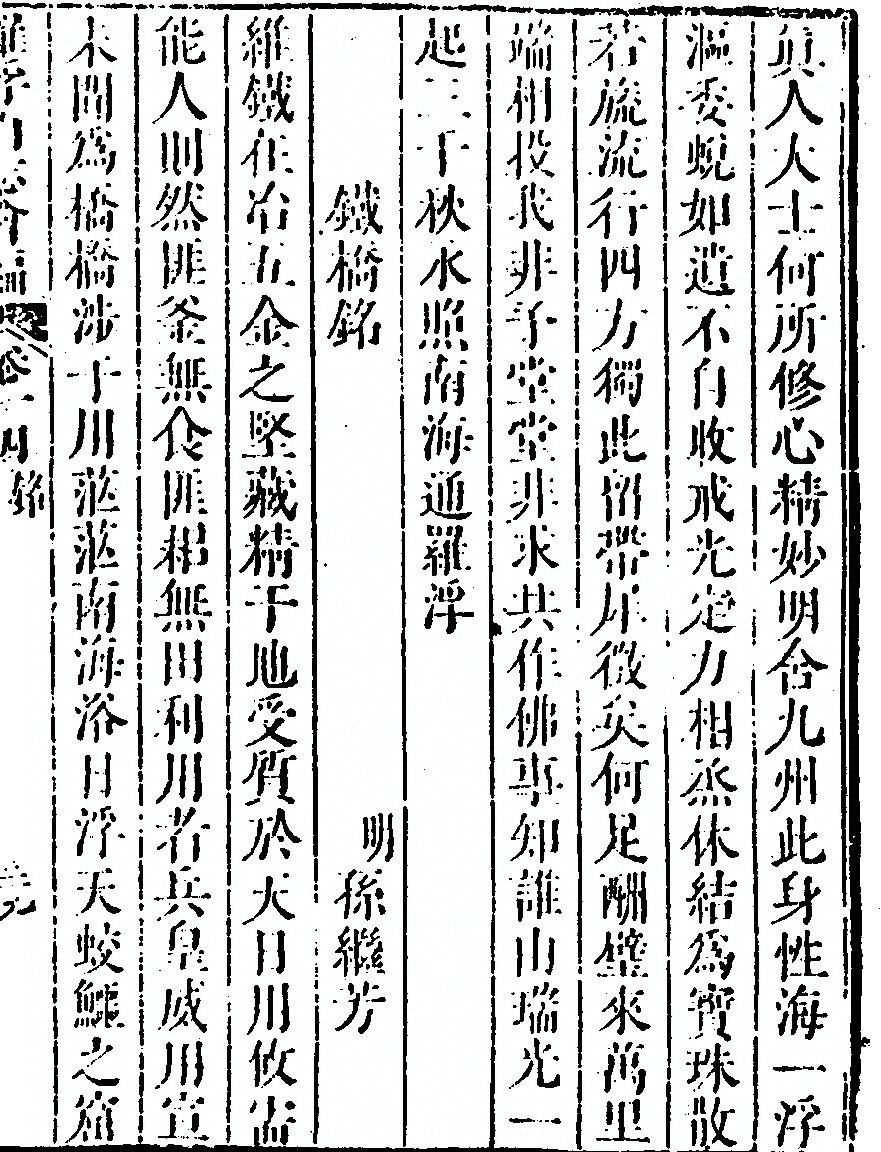 真人大士何所修心精妙明含九州此身性海一浮
漚委蛻如遺不自收戒光定力相烝休結為寶珠散
若旒流行四方獨此留帶犀微矣何足酬璧來萬里
端相投我非予堂堂非求共作佛事知誰由瑞光一
起三千秋水照南海通羅浮
鐵橋銘
明孫繼芳
維鐵在冶五金之堅藏精于地受質於天日用攸需
能人則然匪釜無食匪耜無田利用者兵皇威用宣
未聞為橋橋涉于川茫茫南海浴日浮天蛟鱷之窟
卷十四 銘